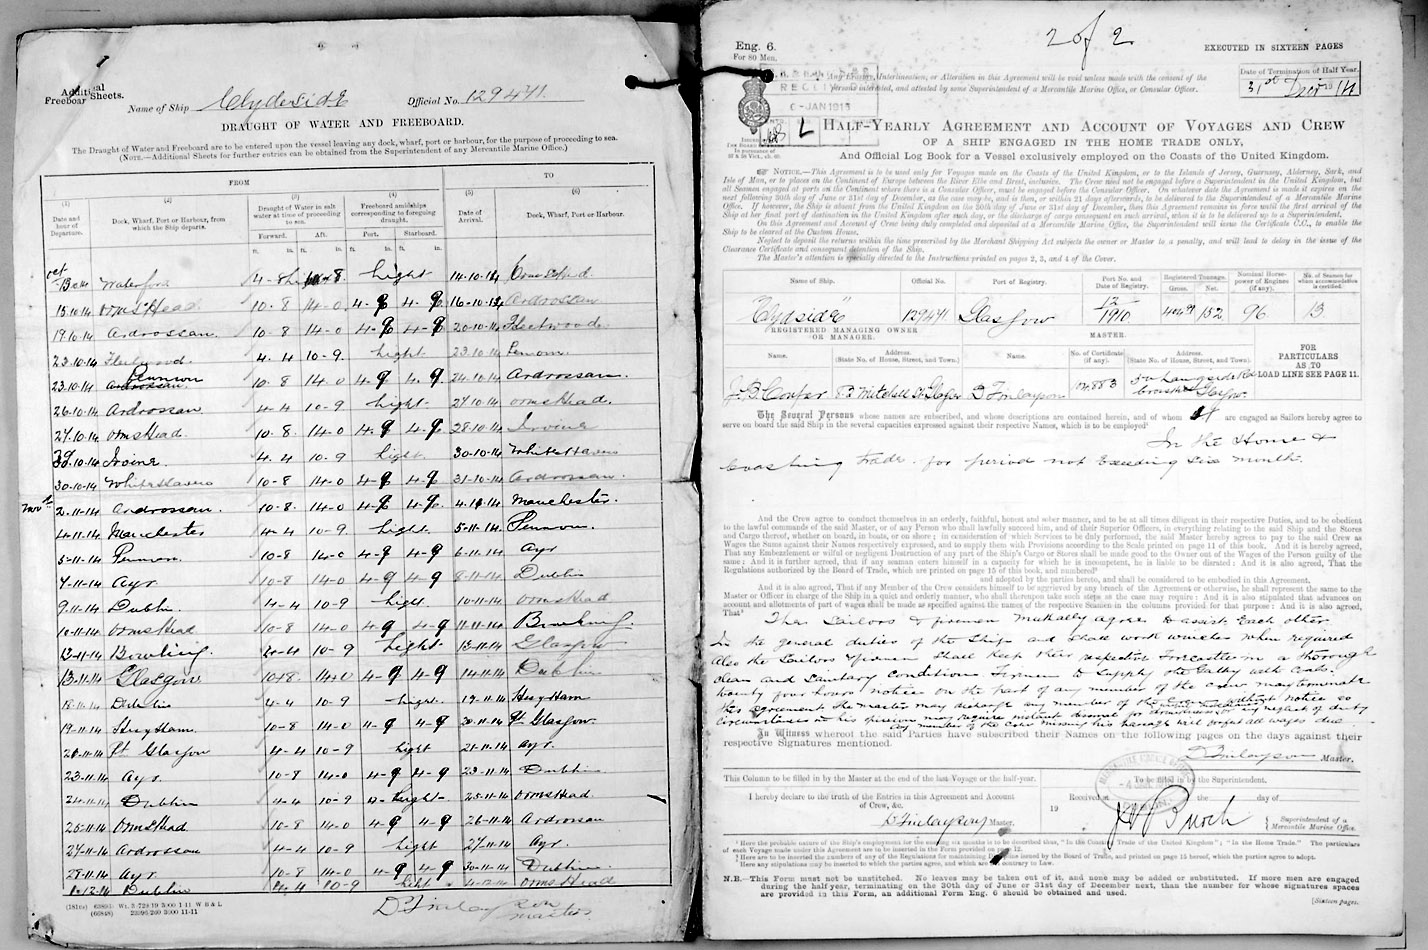 Additional
Freeboard Sheets.
Name of Ship Clydeside Official No. 129441.
DRAUGHT OF WATER AND FREEBOARD.
The Draught of Water and Freeboard are to be entered upon the vessel leaving any dock, wharf, port or harbour, for the purpose of proceeding to sea.
(NOTE.—Additional Sheets for further entries can be obtained from the Superintendent of any Mercantile Marine Office.)
FROM TO
(1) (2) (3) (4) (5) (6)
Date and hour of Departure. Dock, Wharf, Port or Harbour, from which the Ship departs. Draught of Water in salt water at time of proceeding to sea. Freeboard amidships corresponding to foregoing draught. Date of Arrival. Dock, Wharf, Port or Harbour.
Forward. Aft. Port. Starboard.
ft. in. ft. in. ft. in. ft. in.
Oct
13.0.14 Waterford 4-8 light 14-10-14 Ormshead.
15.10.14 Orms Head 10.8 14-0. 4-9 4-9. 16-10-14 Ardrossan
19.10.14 Ardrossan. 10.8 14-0 4-9 4-9 20-10-14 Fleetwood
23.10.14 Fleetwood. 4.4 10-9. light 23.10.14 Penmon.
23.10.14 Penmon 10.8 14.0 4-9 4-9. 24.10.14 Ardrossan.
26.10.14 Ardrossan 4-4 10-9 light. 27.10.14 Orms Head.
27.10.14 Orms Head. 10-8. 14-0 4-9. 4-9. 28.10.14 Irvine
30.10.14 Irvine. 4.4 10-9 light. 30-10-14 White Haven
30-10-14 White Haven 10-8 14-0 4-9 4-9 31-10-14 Ardrossan.
Nov
2.11.14 Ardrossan. 10-8. 14-0 4-9 4-9. 4.11-14 Manchester.
4.11.14 Manchester 4-4 10-9. light. 5-11.14 Penmon.
5-11-14 Penmon. 10-8 14-0 4-9 4-9 6-11.14 Ayr
7-11-14 Ayr. 10-8 14-0 4-9 4-9 8-11-14 Dublin
9.11-14 Dublin. 4-4 10-9 light 10-11-14 Orms Head
10-11-14 Orms Head 10-8 14-0 4-9 4-9 11-11-14 Bowling.
13-11-14 Bowling. 4-4 10-9 light 13-11-14 Glasgow
13-11-14 Glasgow 10-8 14-0 4-9 4-9 14-11-14 Dublin
18-11-14 Dublin 4-4 10-9 light. 19-11-14 Heysham
19-11-14 Heysham. 10-8 14-0 4-9 4-9 20-11-14 Pt Glasgow.
20-11-14 Pt Glasgow 4-4 10-9 light 21-11-14 Ayr.
23-11-14 Ayr. 10-8 14-0 4-9 4-9 23-11-14 Dublin.
24-11-14 Dublin 4-4 10-9 light 25-11-14 Orms Head.
25-11-14 Orms Head 10-8 14-0 4-9 4-9 26-11-14 Ardrossan
27-11-14 Ardrossan 4-4 10-9 light 27-11-14 Ayr.
28-11-14 Ayr 10-8 14-0 4-9 4-9 30-11-14 Dublin
1-12-14 Dublin 4-4 10-9 light 4-12-14 Orms Head
D Finlayson
Master.
2 of 2
Eng. 6.
For 80 Men.
EXECUTED IN SIXTEEN PAGES
Any Erasure, Interlineation, or Alteration in this Agreement will be void unless made with the consent of the
persons interested, and attested by some Superintendent of a Mercantile Marine Office, or Consular Officer.
Date of Termination of Half Year.
31st Decr 1914
6-JAN 1915
HALF-YEARLY AGREEMENT AND ACCOUNT OF VOYAGES AND CREW
OF A SHIP ENGAGED IN THE HOME TRADE ONLY,
And Official Log Book for a Vessel exclusively employed on the Coasts of the United Kingdom.
NOTICE.—This Agreement is to be used only for Voyages made on the Coasts of the United Kingdom, or to the Islands of Jersey, Guernsey, Alderney, Sark, and
Isle of Man, or to places on the Continent of Europe between the River Elbe and Brest, inclusive. The Crew need not be engaged before a Superintendent in the United Kingdom, but
all Seamen engaged at ports on the Continent where there is a Consular Officer, must be engaged before the Consular Officer. On whatever date the Agreement is made it expires on the
next following 30th day of June or 31st day of December, as the case may be, and is then, or within 21 days afterwards, to be delivered to the Superintendent of a Mercantile Marine
Office. If however, the Ship is absent from the United Kingdom on the 30th day of June or 31st day of December, then this Agreement remains in force until the first arrival of the
Ship at her final port of destination in the United Kingdom after such day, or the discharge of cargo consequent on such arrival, when it is to be delivered up to a Superintendent.
On this Agreement and Account of Crew being duly completed and deposited at a Mercantile Marine Office, the Superintendent will issue the Certificate C.C., to enable the
Ship to be cleared at the Custom House.
Neglect to deposit the returns within the time prescribed by the Merchant Shipping Act subjects the owner or Master to a penalty, and will lead to delay in the issue of the
Clearance Certificate and consequent detention of the Ship.
The Master's attention is specially directed to the Instructions printed on pages 2, 3, and 4 of the Cover.
Name of Ship. Official No. Port of Registry. Port No. and Date of Registry. Registered Tonnage. Gross. Net. Nominal Horse-power of Engines (if any). No. of Seamen for whom accommodation is certified.
"Clydeside" 129441 Glasgow 12/1910 152 96 13
REGISTERED MANAGING OWNER OR MANAGER. MASTER.
Name. Address. (State No. of House, Street, and Town.) Name. No. of Certificate (if any). Address. (State No. of House, Street, and Town.)
FOR PARTICULARS AS TO LOAD LINE SEE PAGE 11.
J. B. Couper Mitchell St Glasgow D Finlayson 50 Langside Rd Crosshill Glasgow
The Several Persons whose names are subscribed, and whose descriptions are contained herein, and of whom are engaged as Sailors hereby agree to
serve on board the said Ship in the several capacities expressed against their respective Names, which is to be employed¹
In the Home &
Coasting trade for period not Exceeding Six Months.
And the Crew agree to conduct themselves in an orderly, faithful, honest and sober manner, and to be at all times diligent in their respective Duties, and to be obedient
to the lawful commands of the said Master, or of any Person who shall lawfully succeed him, and of their Superior Officers, in everything relating to the said Ship and the Stores
and Cargo thereof, whether on board, in boats, or on shore; in consideration of which Services to be duly performed, the said Master hereby agrees to pay to the said Crew as
Wages the Sums against their Names respectively expressed, and to supply them with Provisions according to the Scale printed on page 11 of this book. And it is hereby agreed,
That any Embezzlement or wilful or negligent Destruction of any part of the Ship's Cargo or Stores shall be made good to the Owner out of the Wages of the Person guilty of the
same: And it is further agreed, that if any seaman enters himself in a capacity for which he is incompetent, he is liable to be disrated: And it is also agreed, That the
Regulations authorized by the Board of Trade, which are printed on page 15 of this book, and numbered²
and adopted by the parties hereto, and shall be considered to be embodied in this Agreement.
And it is also agreed, That if any Member of the Crew considers himself to be aggrieved by any breach of the Agreement or otherwise, he shall represent the same to the
Master or Officer in charge of the Ship in a quiet and orderly manner, who shall thereupon take such steps as the case may require: And it is also stipulated that advances on
account and allotments of part of wages shall be made as specified against the names of the respective Seamen in the columns provided for that purpose: And it is also agreed,
That³
The Sailors & firemen Mutually agree to assist Each other
In the general duties of the Ship and Shall work winches when required
Also the Sailors & firemen Shall keep their respective Forecastles in a thorough
clean and Sanitary Condition. Firemen to Supply the Galley with Coals.
twenty four hours notice on the part of any member of the crew may terminate
this agreement the master may discharge any member of the
In Witness whereof the said Parties have subscribed their Names on the following pages on the days against their
respective Signatures mentioned.
D Finlayson Master.
This Column to be filled in by the Master at the end of the last Voyage or the half-year.
To be filled in by the Superintendent.
I hereby declare to the truth of the Entries in this Agreement and Account
of Crew, &c.
D Finlayson Master.
19 Received at the day of
Superintendent of a Mercantile Marine Office.
¹ Here the probable nature of the Ship's employment for the ensuing six months is to be described thus, "In the Coasting Trade of the United Kingdom"; "in the Home Trade." The particulars
of each Voyage made under this Agreement are to be inserted in the Form provided on page 12.
² Here are to be inserted the numbers of any of the Regulations for maintaining Discipline issued by the Board of Trade, and printed on page 15 hereof, which the parties agree to adopt.
³ Here any stipulations may be inserted to which the parties agree, and which are not contrary to Law.
N.B.—This Form must not be unstitched. No leaves may be taken out of it, and none may be added or substituted. If more men are engaged
during the half-year, terminating on the 30th day of June or 31st day of December next, than the number for whose signatures spaces
are provided in this Form, an additional Form Eng. 6 should be obtained and used.
[Sixteen pages.